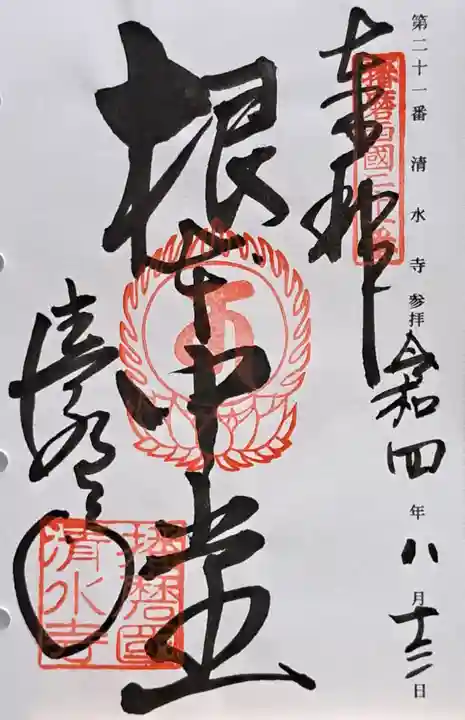 第二十一番 清水寺 参拝
令和四年八月十三日
奉拝
播磨西國三十三
根本中堂
清水寺
播磨國
清水寺